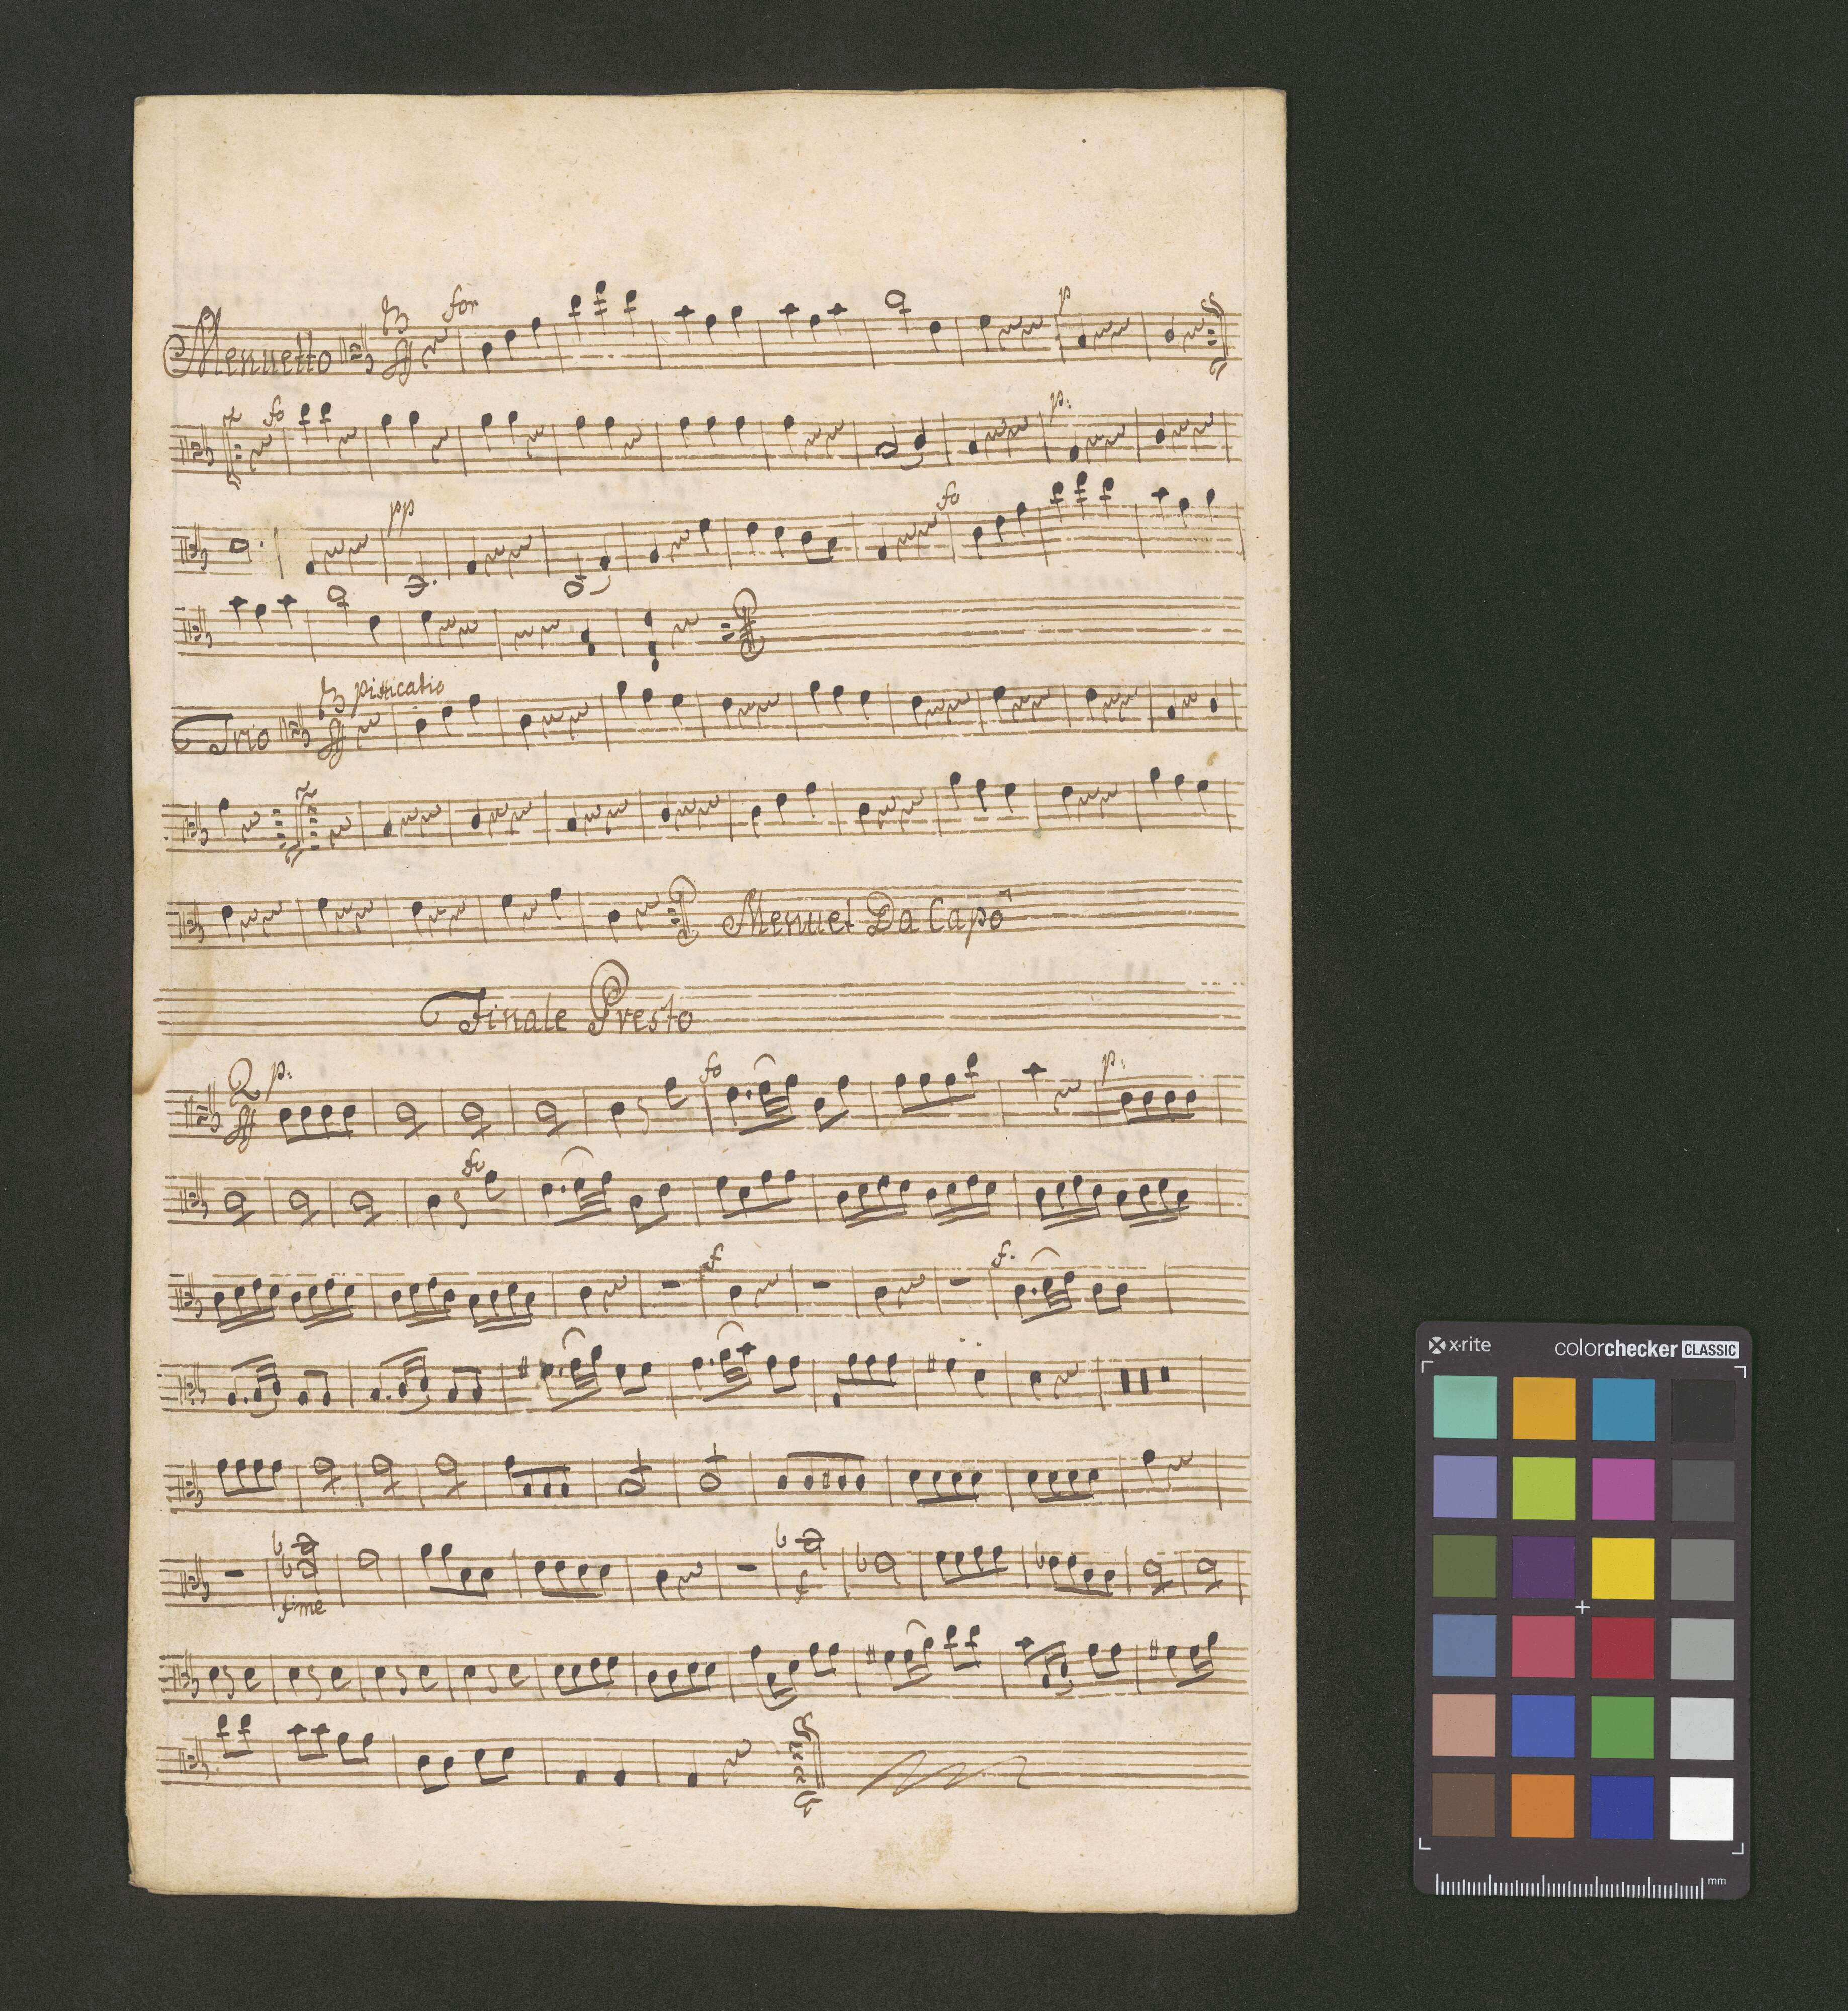 for p
Menuetto
fo p:
pp fo
pizzicatio
Trio
Menuet Da Capo
Finale Presto
p: fo p:
fo
f f.
fime f
x·rite colorchecker CLASSIC
mm